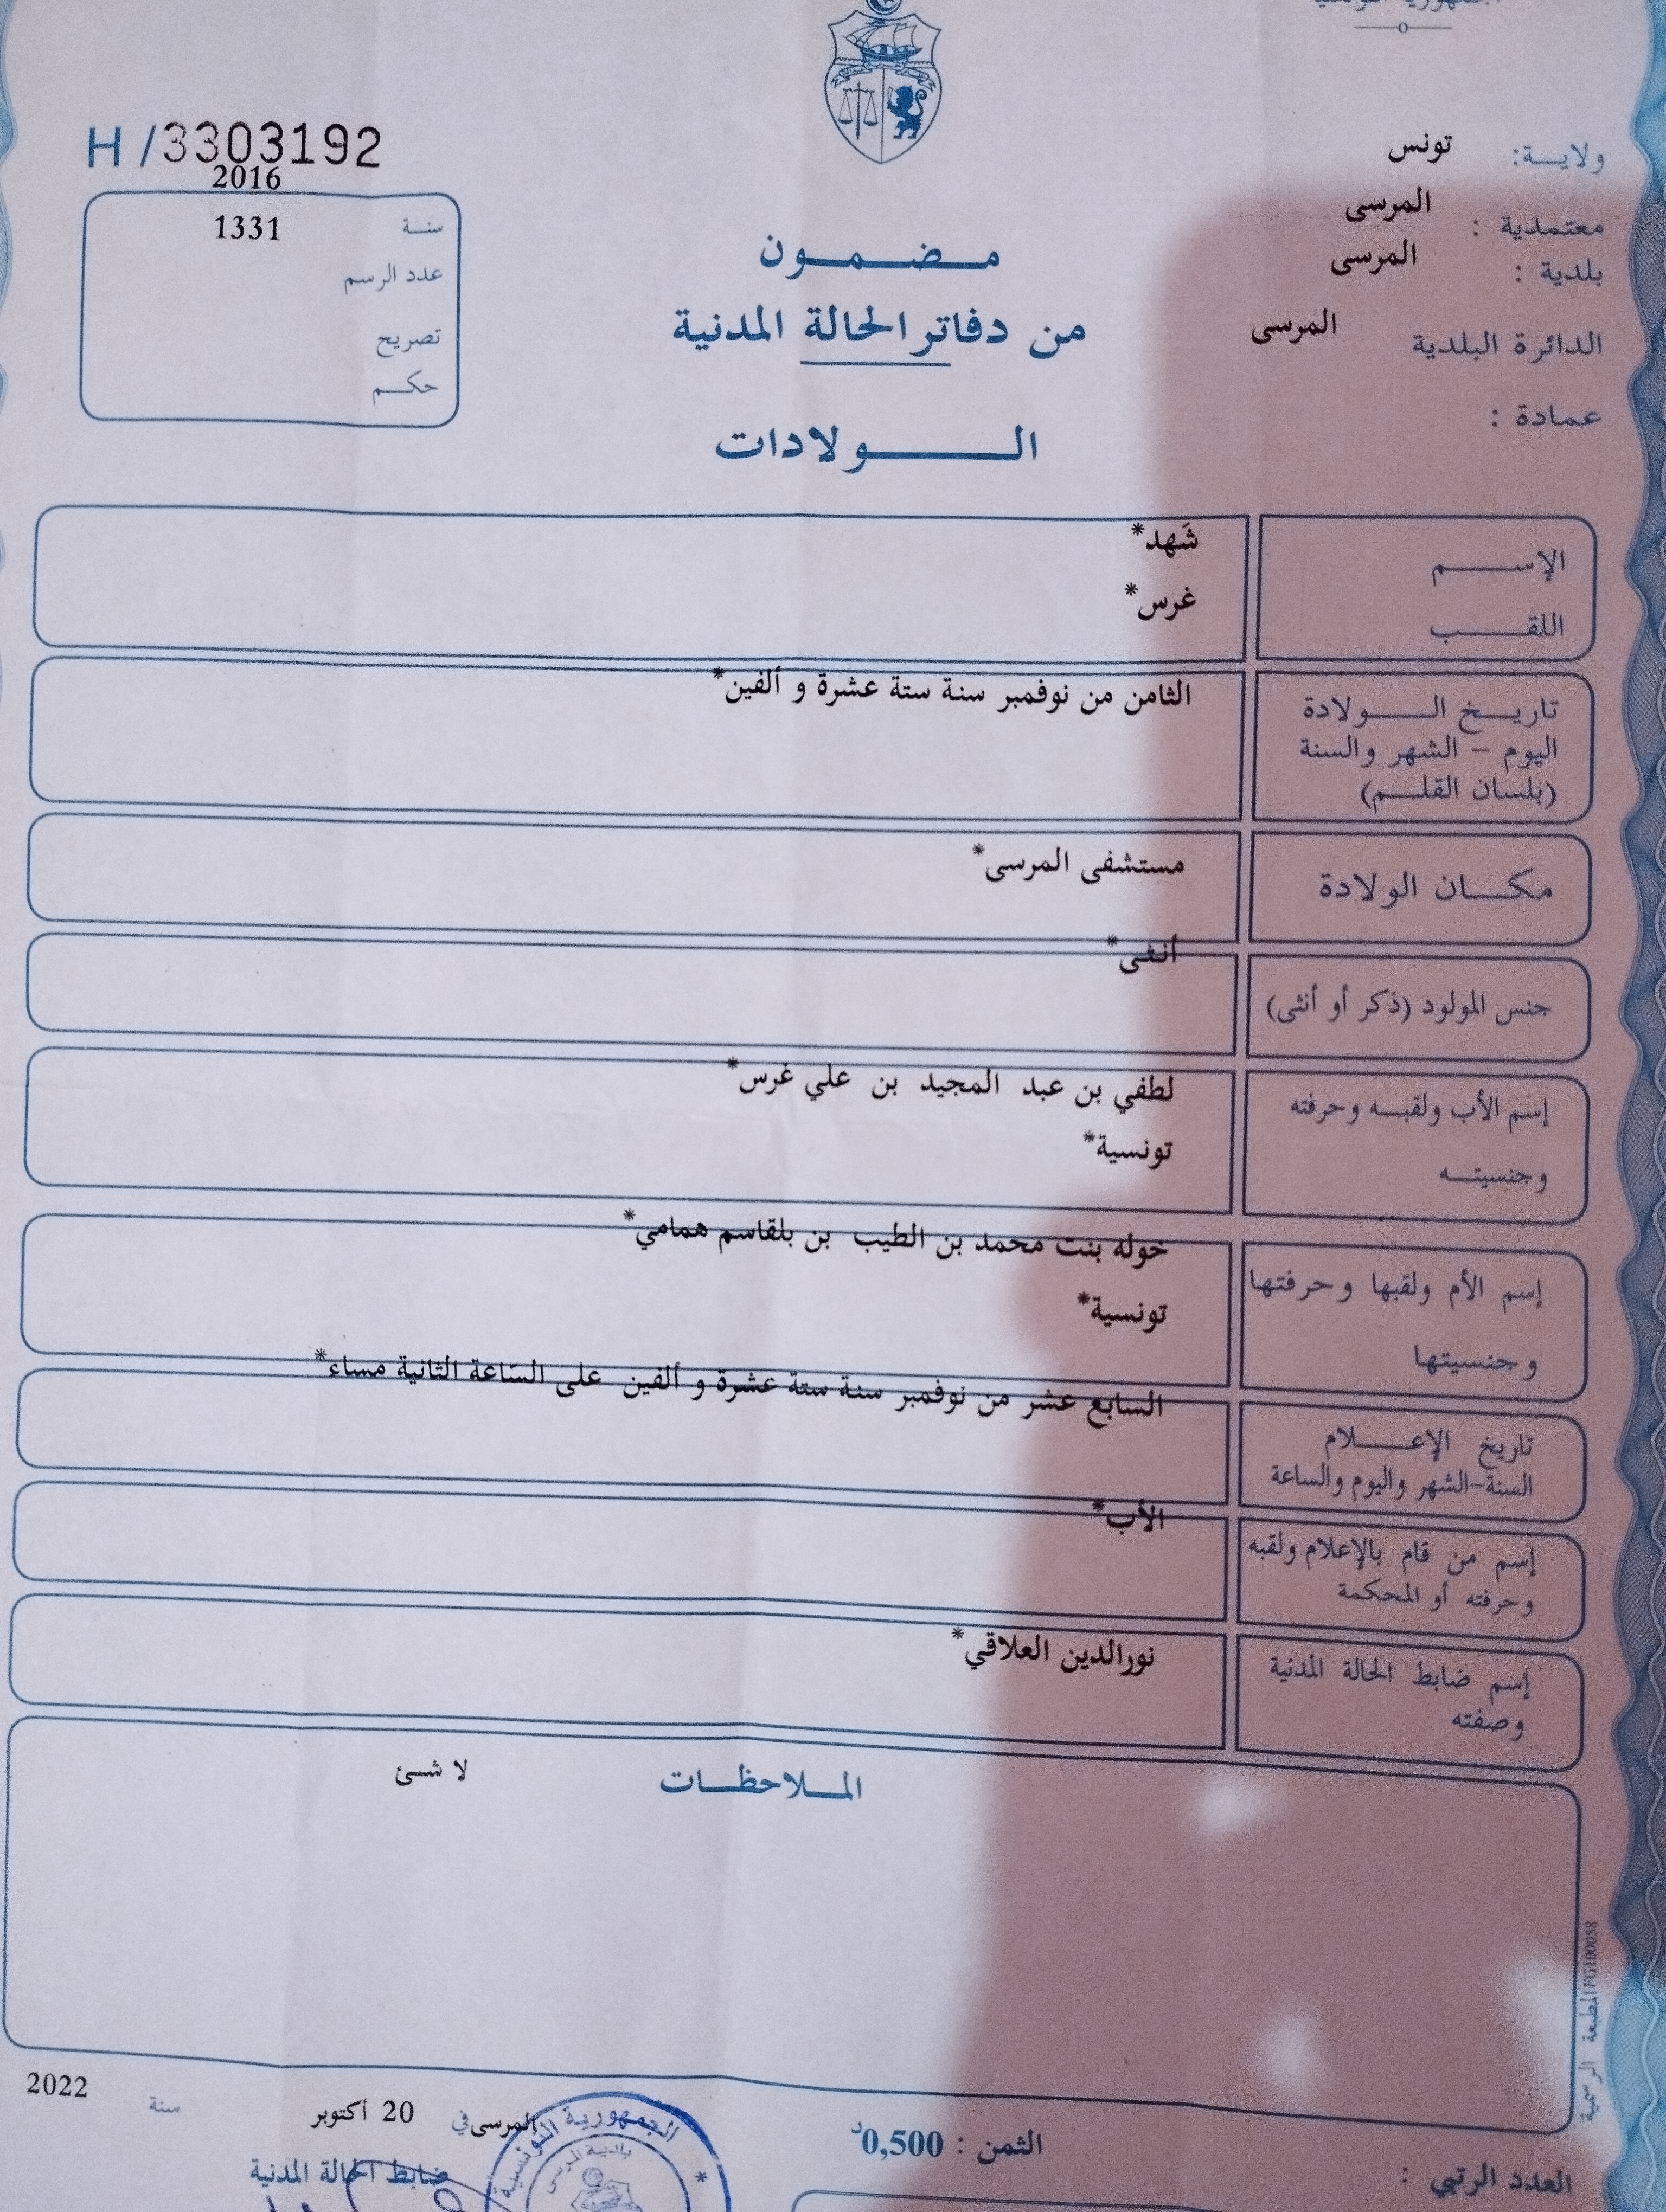 الجمهورية التونسية
H/3303192
ولايـة: تونس
معتمدية : المرسى
بلدية : المرسى
الدائرة البلدية المرسى
عمادة :
2016
سنـة 1331
عدد الرسم
تصريح
حكـم
مـضـمـون
من دفاتر الحالة المدنية
الـولادات
الإسـم شَهد*
اللقـب غرس*
تاريـخ الـولادة الثامن من نوفمبر سنة ستة عشرة و ألفين*
اليوم – الشهر والسنة
(بلسان القلـم)
مكـان الولادة مستشفى المرسى*
جنس المولود (ذكر أو أنثى) أنثى*
إسم الأب ولقبـه وحرفته لطفي بن عبد المجيد بن علي غرس*
وجنسيتـه تونسية*
إسم الأم ولقبها وحرفتها خوله بنت محمد بن الطيب بن بلقاسم همامي*
وجنسيتها تونسية*
تاريخ الإعـلام السابع عشر من نوفمبر سنة ستة عشرة و ألفين على الساعة الثانية مساء*
السنة-الشهر واليوم والساعة
إسم من قام بالإعلام ولقبه الأب*
وحرفته أو المحكمة
إسم ضابط الحالة المدنية نورالدين العلاقي*
وصفته
المـلاحظـات لا شئ
المطبعة الرسمية FG100058
المرسى في 20 أكتوبر سنة 2022
ضابط الحالة المدنية
الجمهورية التونسية
بلدية المرسى
الثمن : 0,500د
العدد الرتبي :